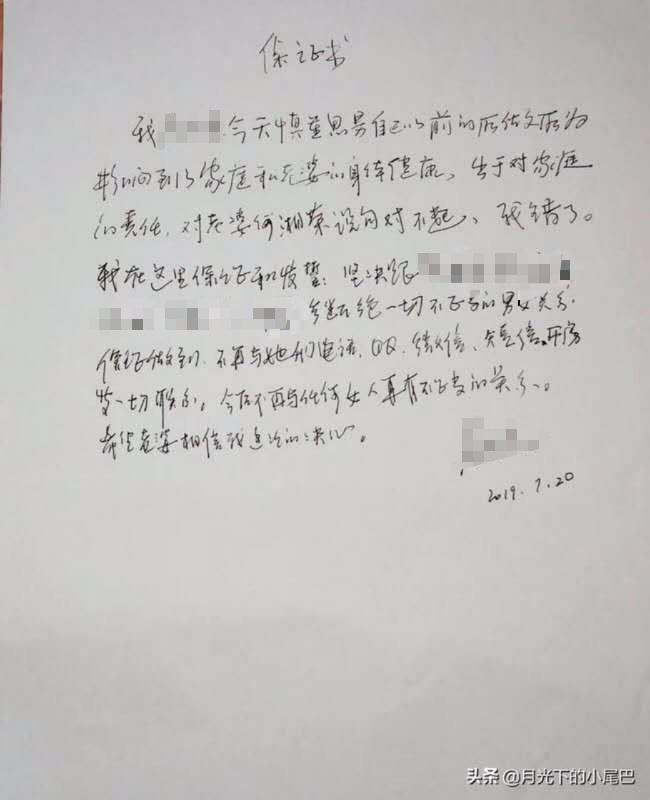 保证书
我 今天慎重思考自己以前的所做所为
影响到了家庭和老婆的身体健康，出于对家庭
的责任，对老婆何湘 说句对不起、我错了。
我在这里保证和发誓：坚决跟
断绝一切不正当的男女关系.
保证做到，不再与她们电话、QQ、微信、短信、开房
等一切联系，今后不再与任何女人再有不正当的关系。
希望老婆相信我这次的决心。
2019.7.20
头条 @月光下的小尾巴